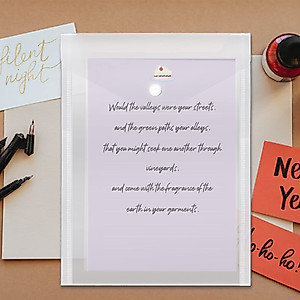 silent
night
Would the valleys were your streets,
and the green paths your alleys,
that you might seek one another through
vineyards,
and come with the fragrance of the
earth in your garments.
Ne
Ye
o-ho-ho!